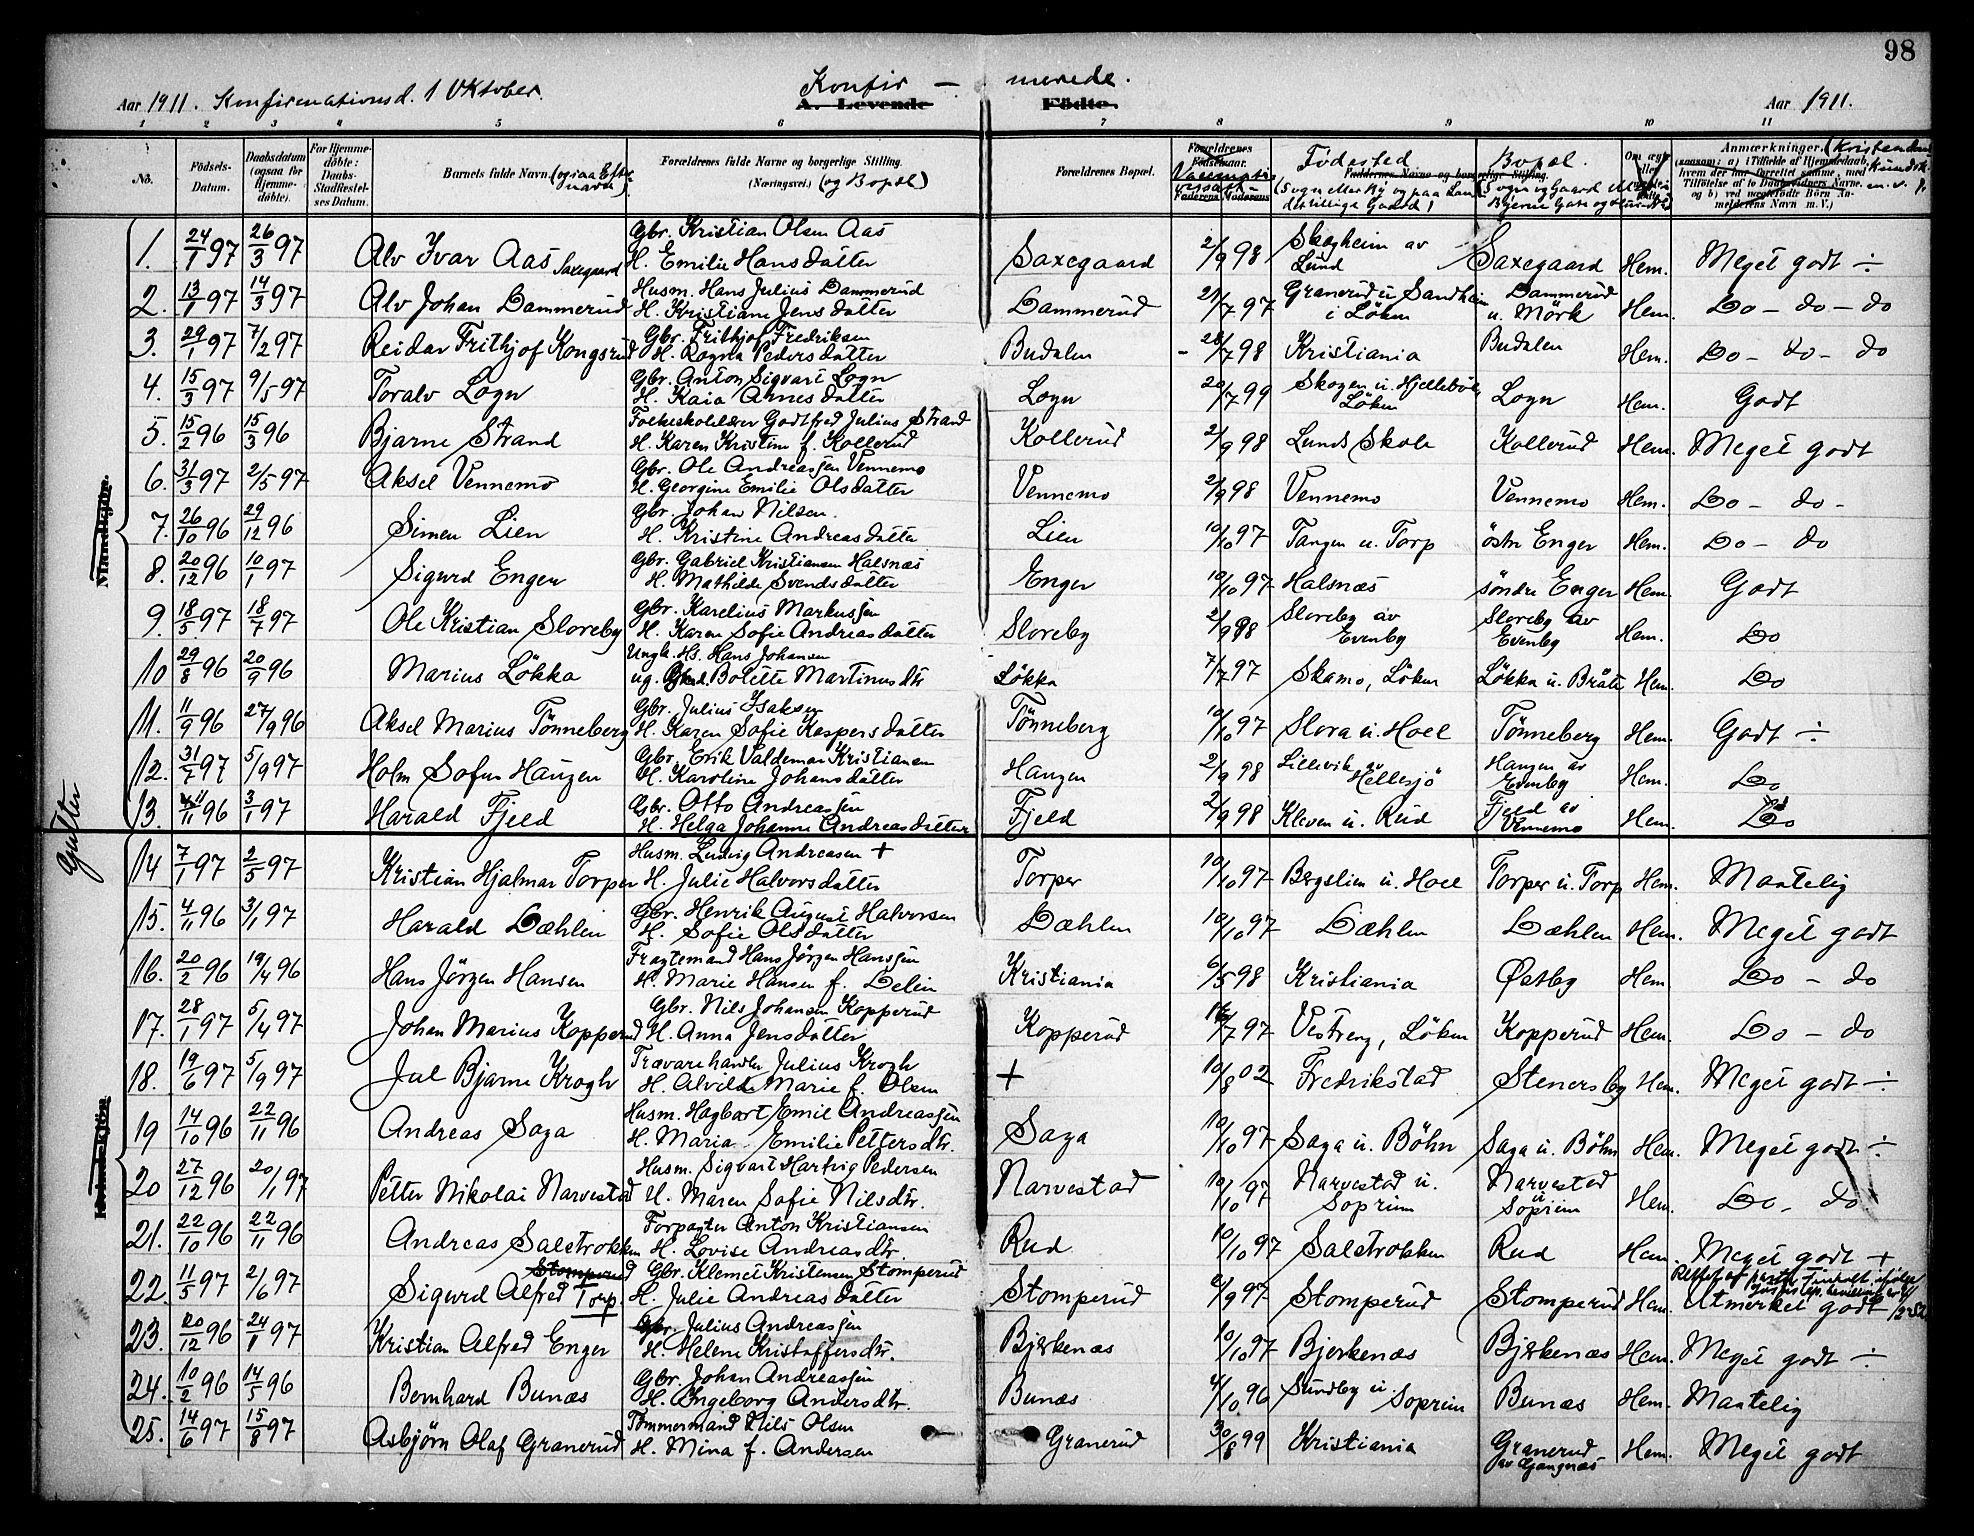 98
Aar 1911. Konfirmationsd. 1 Oktober. Konfir – merede. Aar 1911.
A. Levende Fødte.
1 2 3 4 5 6 7 8 9 10 11
No. Fødsels-Datum. Daabsdatum (ogsaa for Hjemme-døbte). For Hjemme-døbte: Daabs-Stadfæstel-ses Datum. Barnets fulde Navn. (ogsaa Efter-navn) Forældrenes fulde Navne og borgerlige Stilling. (Næringsvei.) (og Bopæl) Forældrenes Bopæl. Fødested Bopæl. Anmærkninger. (Kristendoms Kundsk. m.v.)
Gutter
Mandkjøn.
1. 24/1 97 26/3 97 Alv Ivar Aas Saxegaard Gbr. Kristian Olsen Aas
H. Emilie Hansdatter Saxegaard 2/9 98 Skogheim av Lund Saxegaard Hem. Meget godt ÷
2. 13/1 97 14/3 97 Alv Johan Dammerud Husm. Hans Julius Dammerud
H. Kristiane Jensdatter Dammerud 21/7 97 Granerud u Sandheim i Löken Dammerud u. Mörk Hem. Do – do – do
3. 29/1 97 7/2 97 Reidar Frithjof Kongsrud Gbr. Frithjof Fredriksen
H. Ragna Pedersdatter Budalen 28/7 98 Kristiania Budalen Hem. Do – do – do
4. 15/3 97 9/5 97 Toralv Logn Gbr. Anton Sigvart Logn
H. Kaia Annesdatter Logn 20/7 99 Skogen u. Hjelleböl, Löken Logn Hem. Godt
5. 15/2 96 15/3 96 Bjarne Strand Folkeskolelærer Godtfred Julius Strand
H. Karen Kristine f. Kollerud Kollerud 2/9 98 Lunds Skole Kollerud Hem. Meget godt
6. 31/3 97 2/5 97 Aksel Vennemo Gbr. Ole Andreassen Vennemo
H. Georgine Emilie Olsdatter Vennemo 2/9 98 Vennemo Vennemo Hem. Do – do –
7. 26/10 96 29/12 96 Simen Lien Gbr. Johan Nilsen.
H. Kristine Andreasdatter Lien 10/10 97 Tangen u. Torp östre Enger Hem. Do – do
8. 20/12 96 10/1 97 Sigurd Enger Gbr. Gabriel Kristiansen Halsnæs
H. Mathilde Svendsdatter Enger 10/10 97 Halsnæs söndre Enger Hem. Godt
9. 18/5 97 18/7 97 Ole Kristian Sloreby Gbr. Karelius Markussen
H. Karen Sofie Andreasdatter Sloreby 2/9 98 Sloreby av Evenby Sloreby av Evenby Hem. Do
10 29/8 96 20/9 96 Marius Lökka Ungk. Hs. Hans Johansen
ug. Bolette Martinusdtr Lökka 7/7 97 Skamo, Löken Lökka u. Bråte Hem. Do
11. 11/9 96 27/9 96 Aksel Marius Tönneberg Gbr. Julius Isaksen
H. Karen Sofie Kaspersdatter Tönneberg 10/10 97 Slora u. Hoel Tönneberg Hem. Godt ÷
12. 31/7 97 5/9 97 Holm Sofus Haugen Gbr. Erik Valdemar Kristiansen
H. Karoline Johansdatter Haugen 2/9 98 Lillevik av Hellesjö Haugen av Evenby Hem. Do
13. 4/11 96 3/1 97 Harald Fjeld Gbr. Otto Andreassen
H. Helga Johanne Andreasdatter Fjeld 2/9 98 Kleven u. Rud Fjeld av Vennemo Hem. Do
Kvindekjøn.
14 7/1 97 2/5 97 Kristian Hjalmar Torper Husm. Ludvig Andreasen +
H. Julie Halvorsdatter Torper 10/10 97 Bergslien u. Hoel Torper u. Torp Hem. Maatelig
15. 4/11 96 3/1 97 Harald Dæhlen Gbr. Henrik August Halvorsen
H. Sofie Olsdatter Dæhlen 10/10 97 Dæhlen Dæhlen Hem. Meget godt
16. 20/2 96 19/4 96 Hans Jörgen Hansen Fragtemand Hans Jörgen Hanssen
H. Marie Hansen f. Delin Kristiania 6/5 98 Kristiania Østby Hem Do – do
17. 28/1 97 5/4 97 Johan Marius Kopperud Gbr. Nils Johansen Kopperud
H. Anna Jensdatter Kopperud 7 97 Vestreng, Löken Kopperud Hem. Do – do
18. 19/6 97 5/9 97 Jul Bjarne Krogh Trævarehandler Julius Krogh
H. Alvilde Marie f. Olsen + 10/8 02 Fredrikstad Stenersby Hem. Meget godt ÷
19 14/10 96 22/11 96 Andreas Saga Husm. Hagbart Emil Andreassen
H. Maria Emilie Pettersdtr. Saga 10/10 97 Saga u. Böhn Saga u. Böhn Hem. Meget godt ÷
20 27/12 96 20/1 97 Petter Nikolai Narvestad Husm. Sigvart Hartvig Pedersen
H. Maren Sofie Nilsdtr. Narvestad 10/10 97 Narvestad u. Soprim Narvestad u Söprim Hem. Do – do
21. 22/10 96 22/11 96 Andreas Salstrokken Forpagter Anton Kristiansen
H. Lovise Andreasdtr. Rud 10/10 97 Salstrokken Rud Hem. Meget godt +
22. 11/5 97 2/6 97 Sigurd Alfred Stomperud Torp. Gbr. Klemet Kristensen Stomperud
H. Julie Andreasdatter Stomperud 9 97 Stomperud Stomperud Hem. Utmerket godt
23. 20/12 96 24/1 97 Kristian Alfred Enger Gbr. Julius Andreassen
H. Helene Kristoffersdtr. Bjerkenæs 10/10 97 Bjerkenæs Bjerkenæs Hem. Meget godt ÷
24. 10/2 96 14/5 96 Bernhard Bunæs Gbr. Johan Andreassen
H. Ingeborg Andersdtr. Bunæs 4/10 96 Sundby u. Soprim Bunæs Hem. Maatelig
25. 14/6 97 15/8 97 Asbjörn Olaf Granerud Tömmermand Nils Olsen
H. Mina f. Andersen Granerud 30/8 99 Kristiania Granerud av Gangnæs Hem. Meget godt